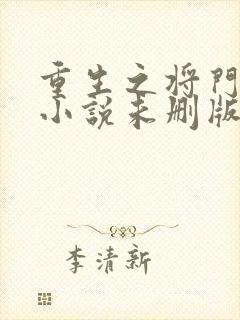 重生之将門
小説未删版
李清新